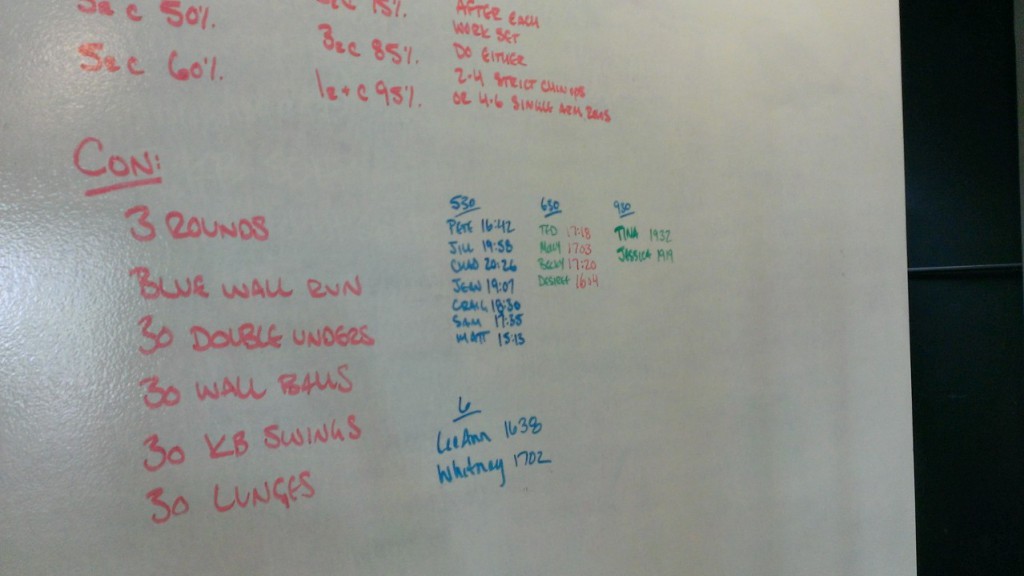 50%.
60%.
15%.
3 @ 85%.
95%.
AFTER EACH
WORK SET
DO EITHER
2-4 STRICT CHINUPS
OR 4-6 SINGLE ARM ROWS
CON:
3 ROUNDS
BLUE WALL RUN
30 DOUBLE UNDERS
30 WALL BALLS
30 KB SWINGS
30 LUNGES
530
PETE 16:42
JILL 19:58
CHAD 20:26
JEAN 19:07
CRAIG 18:30
SAM 17:35
MATT 15:13
630
TED 17:18
MOLLY 17:03
BECKY 17:20
16:04
930
TINA 1932
JESSICA 1919
6
LeeAnn 1638
Whitney 1702